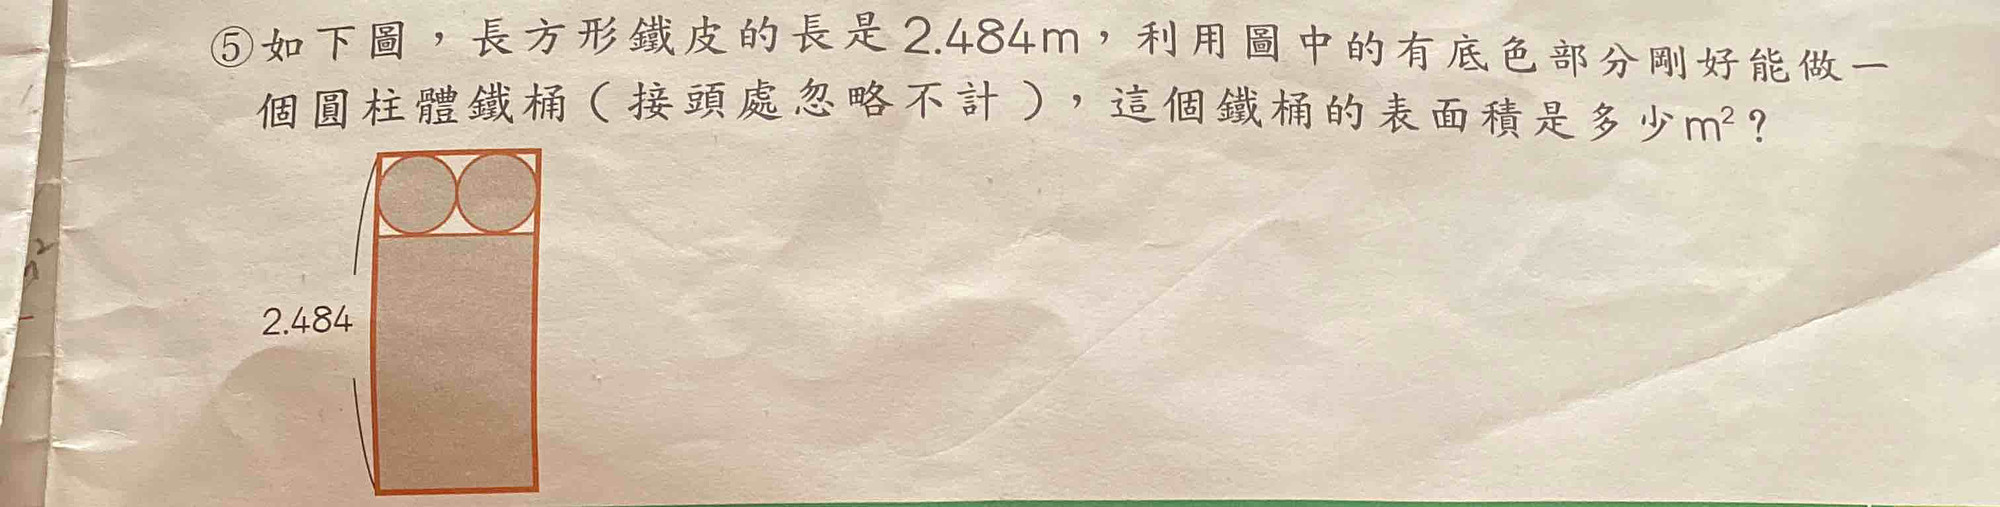 ⑤如下圖，長方形鐵皮的長是2.484m，利用圖中的有底色部分剛好能做一
個圓柱體鐵桶（接頭處忽略不計），這個鐵桶的表面積是多少m²？
2.484